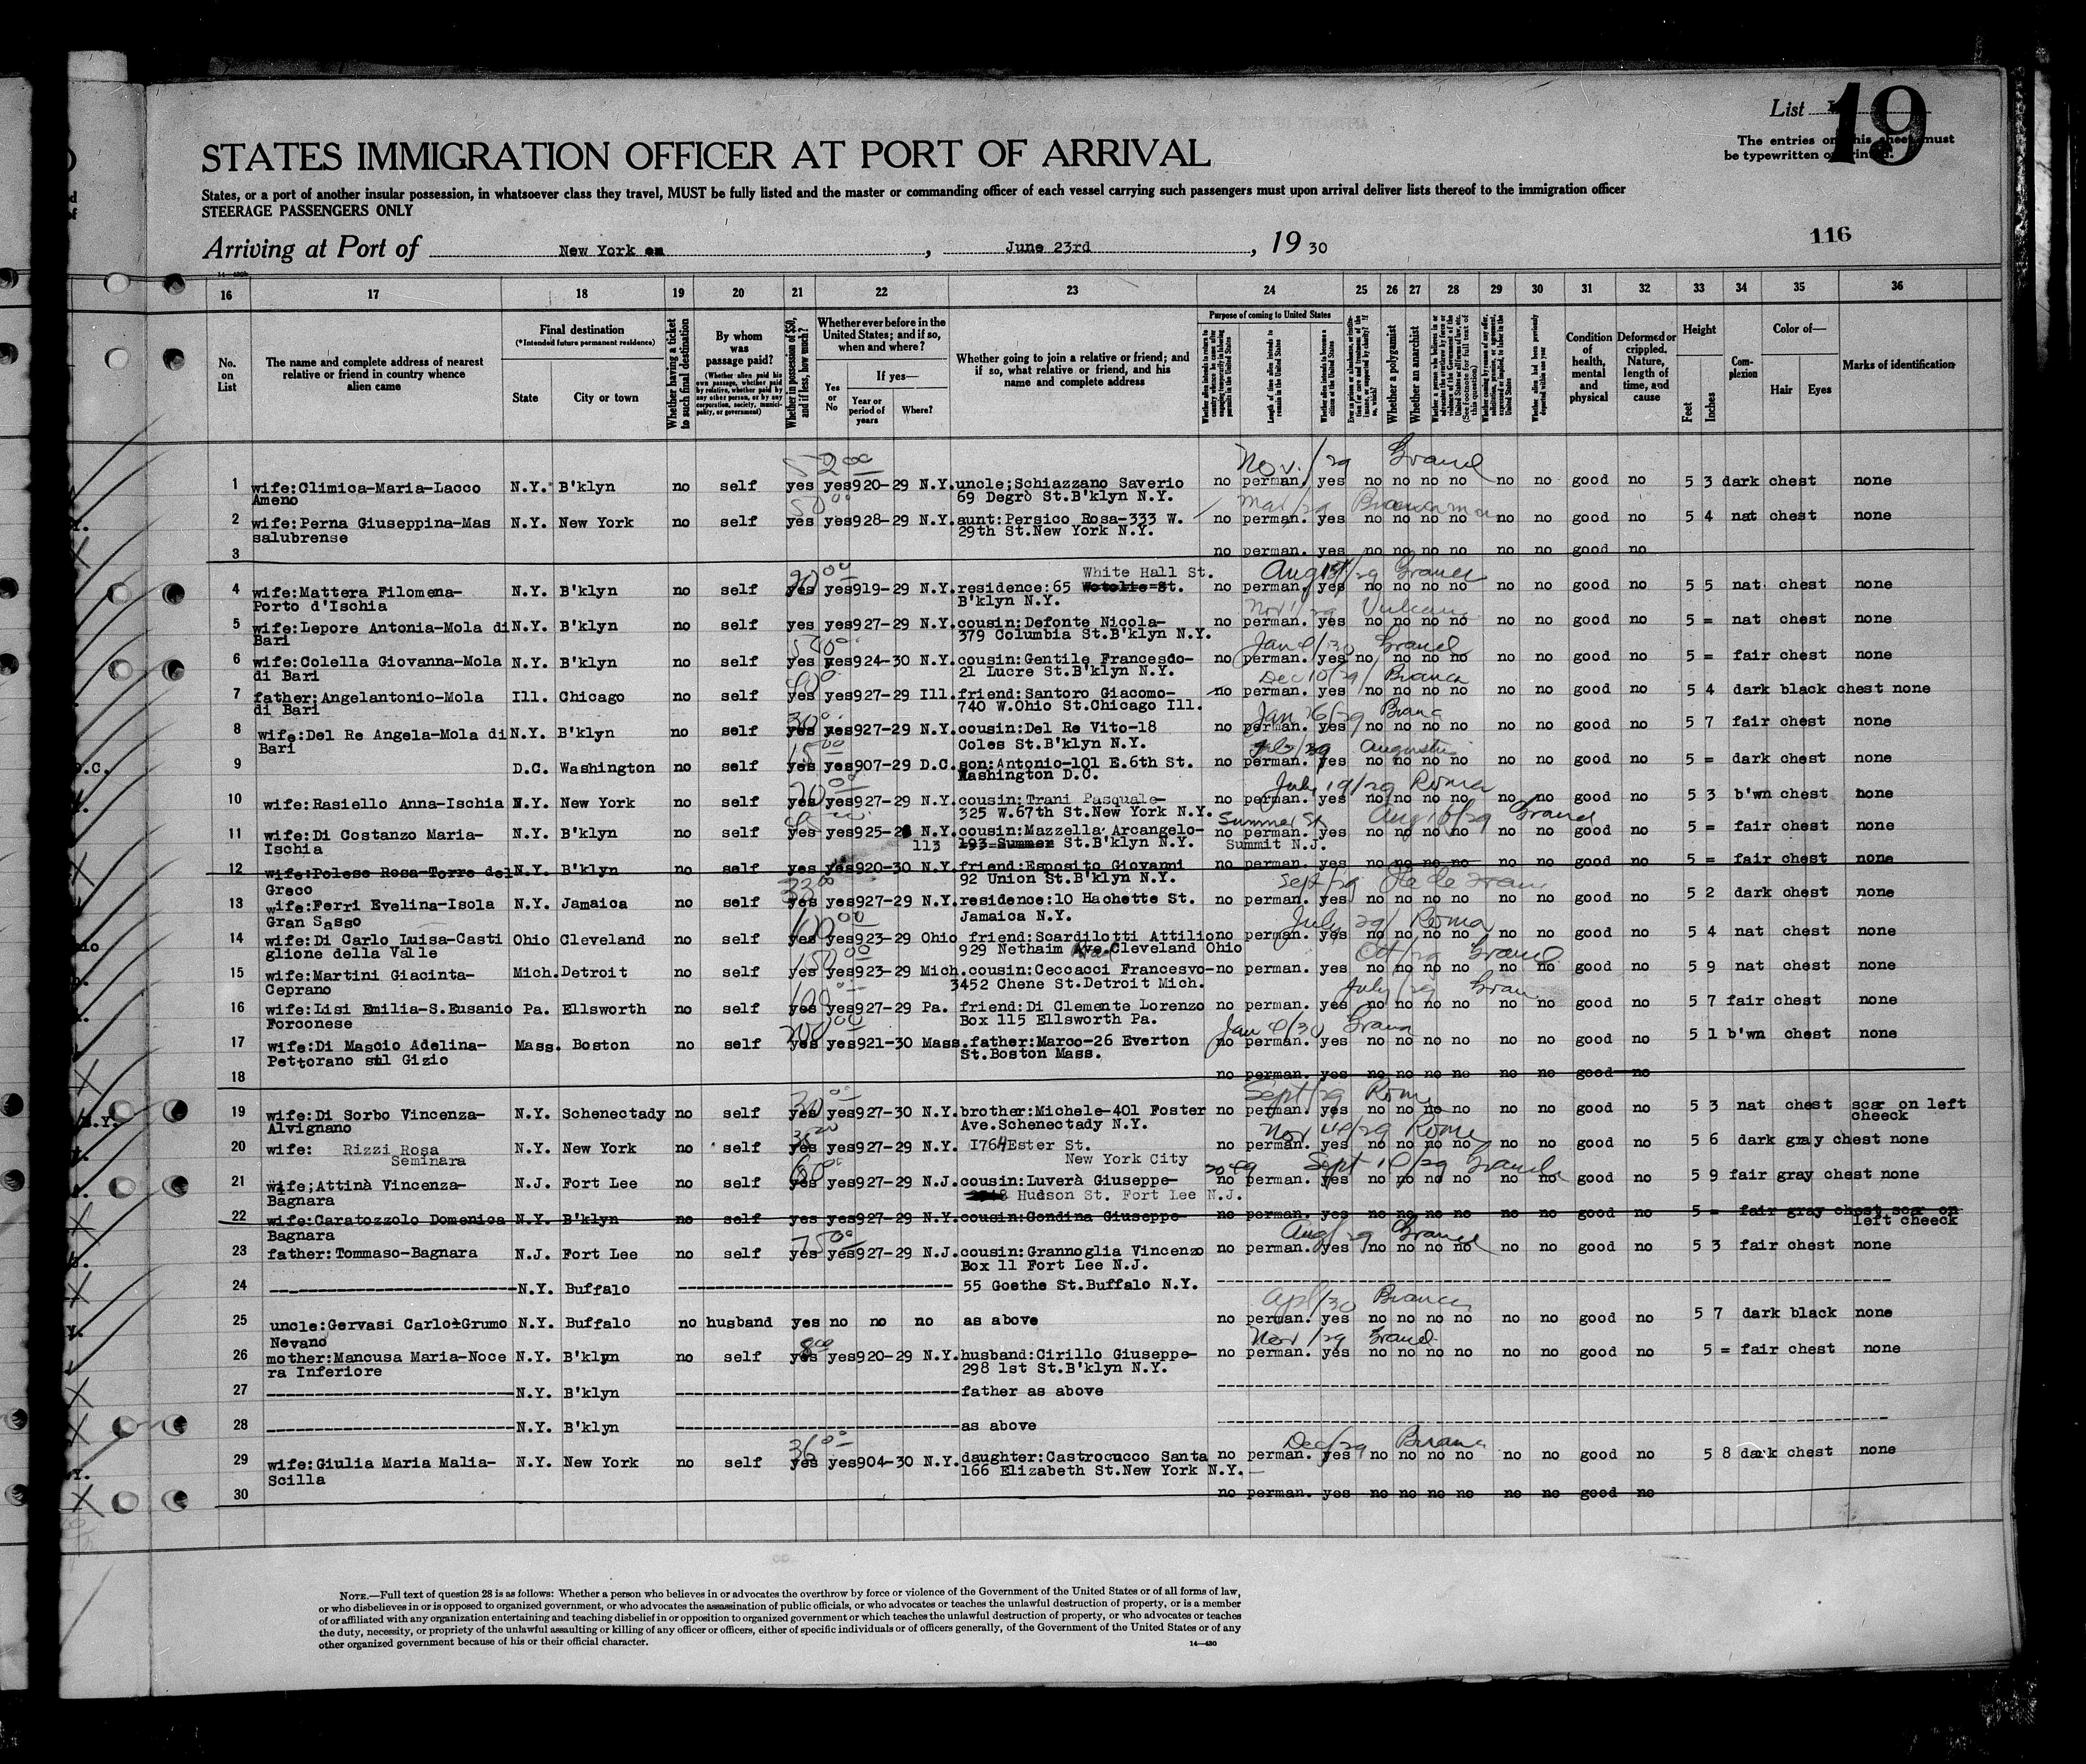 List 19
The entries on this sheet must
be typewritten or printed.
STATES IMMIGRATION OFFICER AT PORT OF ARRIVAL
States, or a port of another insular possession, in whatsoever class they travel, MUST be fully listed and the master or commanding officer of each vessel carrying such passengers must upon arrival deliver lists thereof to the immigration officer
STEERAGE PASSENGERS ONLY
Arriving at Port of New York on, June 23rd, 19 30
116
16 17 18 19 20 21 22 23 24 25 26 27 28 29 30 31 32 33 34 35 36
No. on List
The name and complete address of nearest relative or friend in country whence alien came
Final destination
(*Intended future permanent residence)
State City or town
Whether having a ticket to such final destination
By whom was passage paid?
(Whether alien paid his own passage, whether paid by relative, whether paid by any other person, or by any corporation, society, municipality, or government)
Whether in possession of $50, and if less, how much?
Whether ever before in the United States; and if so, when and where?
Yes or No
If yes—
Year or period of years Where?
Whether going to join a relative or friend; and if so, what relative or friend, and his name and complete address
Purpose of coming to United States
Length of time alien intends to remain in the United States
Whether a polygamist
Whether an anarchist
Condition of health, mental and physical
Deformed or crippled. Nature, length of time, and cause
Height
Feet Inches
Complexion
Color of—
Hair Eyes
Marks of identification
Nov. /29 Grand
1 wife:Climica-Maria-Lacco N.Y. B'klyn no self yes yes 920-29 N.Y. uncle;Schiazzano Saverio no perman. yes no no no no no no good no 5 3 dark chest none
Ameno 69 Degrò St.B'klyn N.Y.
2 wife:Perna Giuseppina-Mas N.Y. New York no self yes yes 928-29 N.Y. aunt:Persico Rosa-333 W. no perman. yes no no no no no no good no 5 4 nat chest none
salubrense 29th St.New York N.Y.
3 no perman. yes no no no no no no good no
White Hall St. Aug /29 Grand
4 wife:Mattera Filomena- N.Y. B'klyn no self yes yes 919-29 N.Y. residence:65 St. no perman. yes no no no no no no good no 5 5 nat chest none
Porto d'Ischia B'klyn N.Y.
Nov 1/29 Vulcan
5 wife:Lepore Antonia-Mola di N.Y. B'klyn no self yes yes 927-29 N.Y. cousin:Defonte Nicola- no perman. yes no no no no no no good no 5 = nat chest none
Bari 379 Columbia St.B'klyn N.Y.
Jan /30 Grand
6 wife:Colella Giovanna-Mola N.Y. B'klyn no self yes yes 924-30 N.Y. cousin:Gentile Francesdo- no perman. yes no no no no no no good no 5 = fair chest none
di Bari 21 Lucre St.B'klyn N.Y.
Dec 10/29 Bianca
7 father:Angelantonio-Mola Ill. Chicago no self yes yes 927-29 Ill. friend:Santoro Giacomo- no perman. yes no no no no no no good no 5 4 dark black chest none
di Bari 740 W.Ohio St.Chicago Ill.
Jan 26/29
8 wife:Del Re Angela-Mola di N.Y. B'klyn no self yes yes 927-29 N.Y. cousin:Del Re Vito-18 no perman. yes no no no no no no good no 5 7 fair chest none
Bari Coles St.B'klyn N.Y.
9 D.C. Washington no self yes yes 907-29 D.C. son:Antonio-101 E.6th St. no perman. yes no no no no no no good no 5 = dark chest none
Washington D.C.
July 19/29 Roma
10 wife:Rasiello Anna-Ischia N.Y. New York no self yes yes 927-29 N.Y. cousin:Trani Pasquale- no perman. yes no no no no no no good no 5 3 b'wn chest none
325 W.67th St.New York N.Y.
Summer St Aug 16/29 Grand
11 wife:Di Costanzo Maria- N.Y. B'klyn no self yes yes 925-28 N.Y. cousin:Mazzella Arcangelo- no perman. yes no no no no no no good no 5 = fair chest none
Ischia 113 193 Summer St.B'klyn N.Y. Summit N.J.
12 wife:Polese Rosa-Torre del N.Y. B'klyn no self yes yes 920-30 N.Y. friend:Esposito Giovanni no perman. yes no no no no no no good no 5 = fair chest none
Greco 92 Union St.B'klyn N.Y.
13 wife:Ferri Evelina-Isola N.Y. Jamaica no self yes yes 927-29 N.Y. residence:10 Hachette St. no perman. yes no no no no no no good no 5 2 dark chest none
Gran Sasso Jamaica N.Y.
July 29 Roma
14 wife:Di Carlo Luisa-Casti Ohio Cleveland no self yes yes 923-29 Ohio friend:Scardilotti Attilio no perman. yes no no no no no no good no 5 4 nat chest none
glione della Valle 929 Nethaim Ave. Cleveland Ohio
Oct/29 Grand
15 wife:Martini Giacinta- Mich. Detroit no self yes yes 923-29 Mich. cousin:Ceccacci Francesvo- no perman. yes no no no no no no good no 5 9 nat chest none
Ceprano 3452 Chene St.Detroit Mich.
July /29 Gran
16 wife:Lisi Emilia-S.Eusanio Pa. Ellsworth no self yes yes 927-29 Pa. friend:Di Clemente Lorenzo no perman. yes no no no no no no good no 5 7 fair chest none
Forconese Box 115 Ellsworth Pa.
17 wife:Di Mascio Adelina- Mass. Boston no self yes yes 921-30 Mass. father:Marco-26 Everton no perman. yes no no no no no no good no 5 1 b'wn chest none
Pettorano sul Gizio St.Boston Mass.
18 no perman. yes no no no no no no good no
Sept/29 Roma
19 wife:Di Sorbo Vincenza- N.Y. Schenectady no self yes yes 927-30 N.Y. brother:Michele-401 Foster no perman. yes no no no no no no good no 5 3 nat chest scar on left
Alvignano Ave.Schenectady N.Y. cheeck
20 wife: Rizzi Rosa N.Y. New York no self yes yes 927-29 N.Y. 1764 Ester St. no perman. yes no no no no no no good no 5 6 dark gray chest none
Seminara New York City
Sept 10/29 Grand
21 wife;Attinà Vincenza- N.J. Fort Lee no self yes yes 927-29 N.J. cousin:Luverà Giuseppe- no perman. yes no no no no no no good no 5 9 fair gray chest none
Bagnara Hudson St. Fort Lee N.J.
22 wife:Caratozzolo Domenica N.Y. B'klyn no self yes yes 927-29 N.Y. cousin:Gendina Giuseppe no perman. yes no no no no no no good no 5 = fair gray chest scar on
Bagnara left cheeck
Aug/29 Grand
23 father:Tommaso-Bagnara N.J. Fort Lee no self yes yes 927-29 N.J. cousin:Grannoglia Vincenzo no perman. yes no no no no no no good no 5 3 fair chest none
Box 11 Fort Lee N.J.
24 N.Y. Buffalo 55 Goethe St.Buffalo N.Y.
25 uncle:Gervasi Carlo-Grumo N.Y. Buffalo no husband yes no no no as above no perman. yes no no no no no no good no 5 7 dark black none
Nevano
Nov /29 Grand
26 mother:Mancusa Maria-Noce N.Y. B'klyn no self yes yes 920-29 N.Y. husband:Cirillo Giuseppe- no perman. yes no no no no no no good no 5 = fair chest none
ra Inferiore 298 1st St.B'klyn N.Y.
27 N.Y. B'klyn father as above
28 N.Y. B'klyn as above
Dec/29
29 wife:Giulia Maria Malia- N.Y. New York no self yes yes 904-30 N.Y. daughter:Castrocucco Santa no perman. yes no no no no no no good no 5 8 dark chest none
Scilla 166 Elizabeth St.New York N.Y.
30 no perman. yes no no no no no no good no
NOTE.—Full text of question 28 is as follows: Whether a person who believes in or advocates the overthrow by force or violence of the Government of the United States or of all forms of law,
or who disbelieves in or is opposed to organized government, or who advocates the assassination of public officials, or who advocates or teaches the unlawful destruction of property, or is a member
of or affiliated with any organization entertaining and teaching disbelief in or opposition to organized government or which teaches the unlawful destruction of property, or who advocates or teaches
the duty, necessity, or propriety of the unlawful assaulting or killing of any officer or officers, either of specific individuals or of officers generally, of the Government of the United States or of any
other organized government because of his or their official character.
14—430